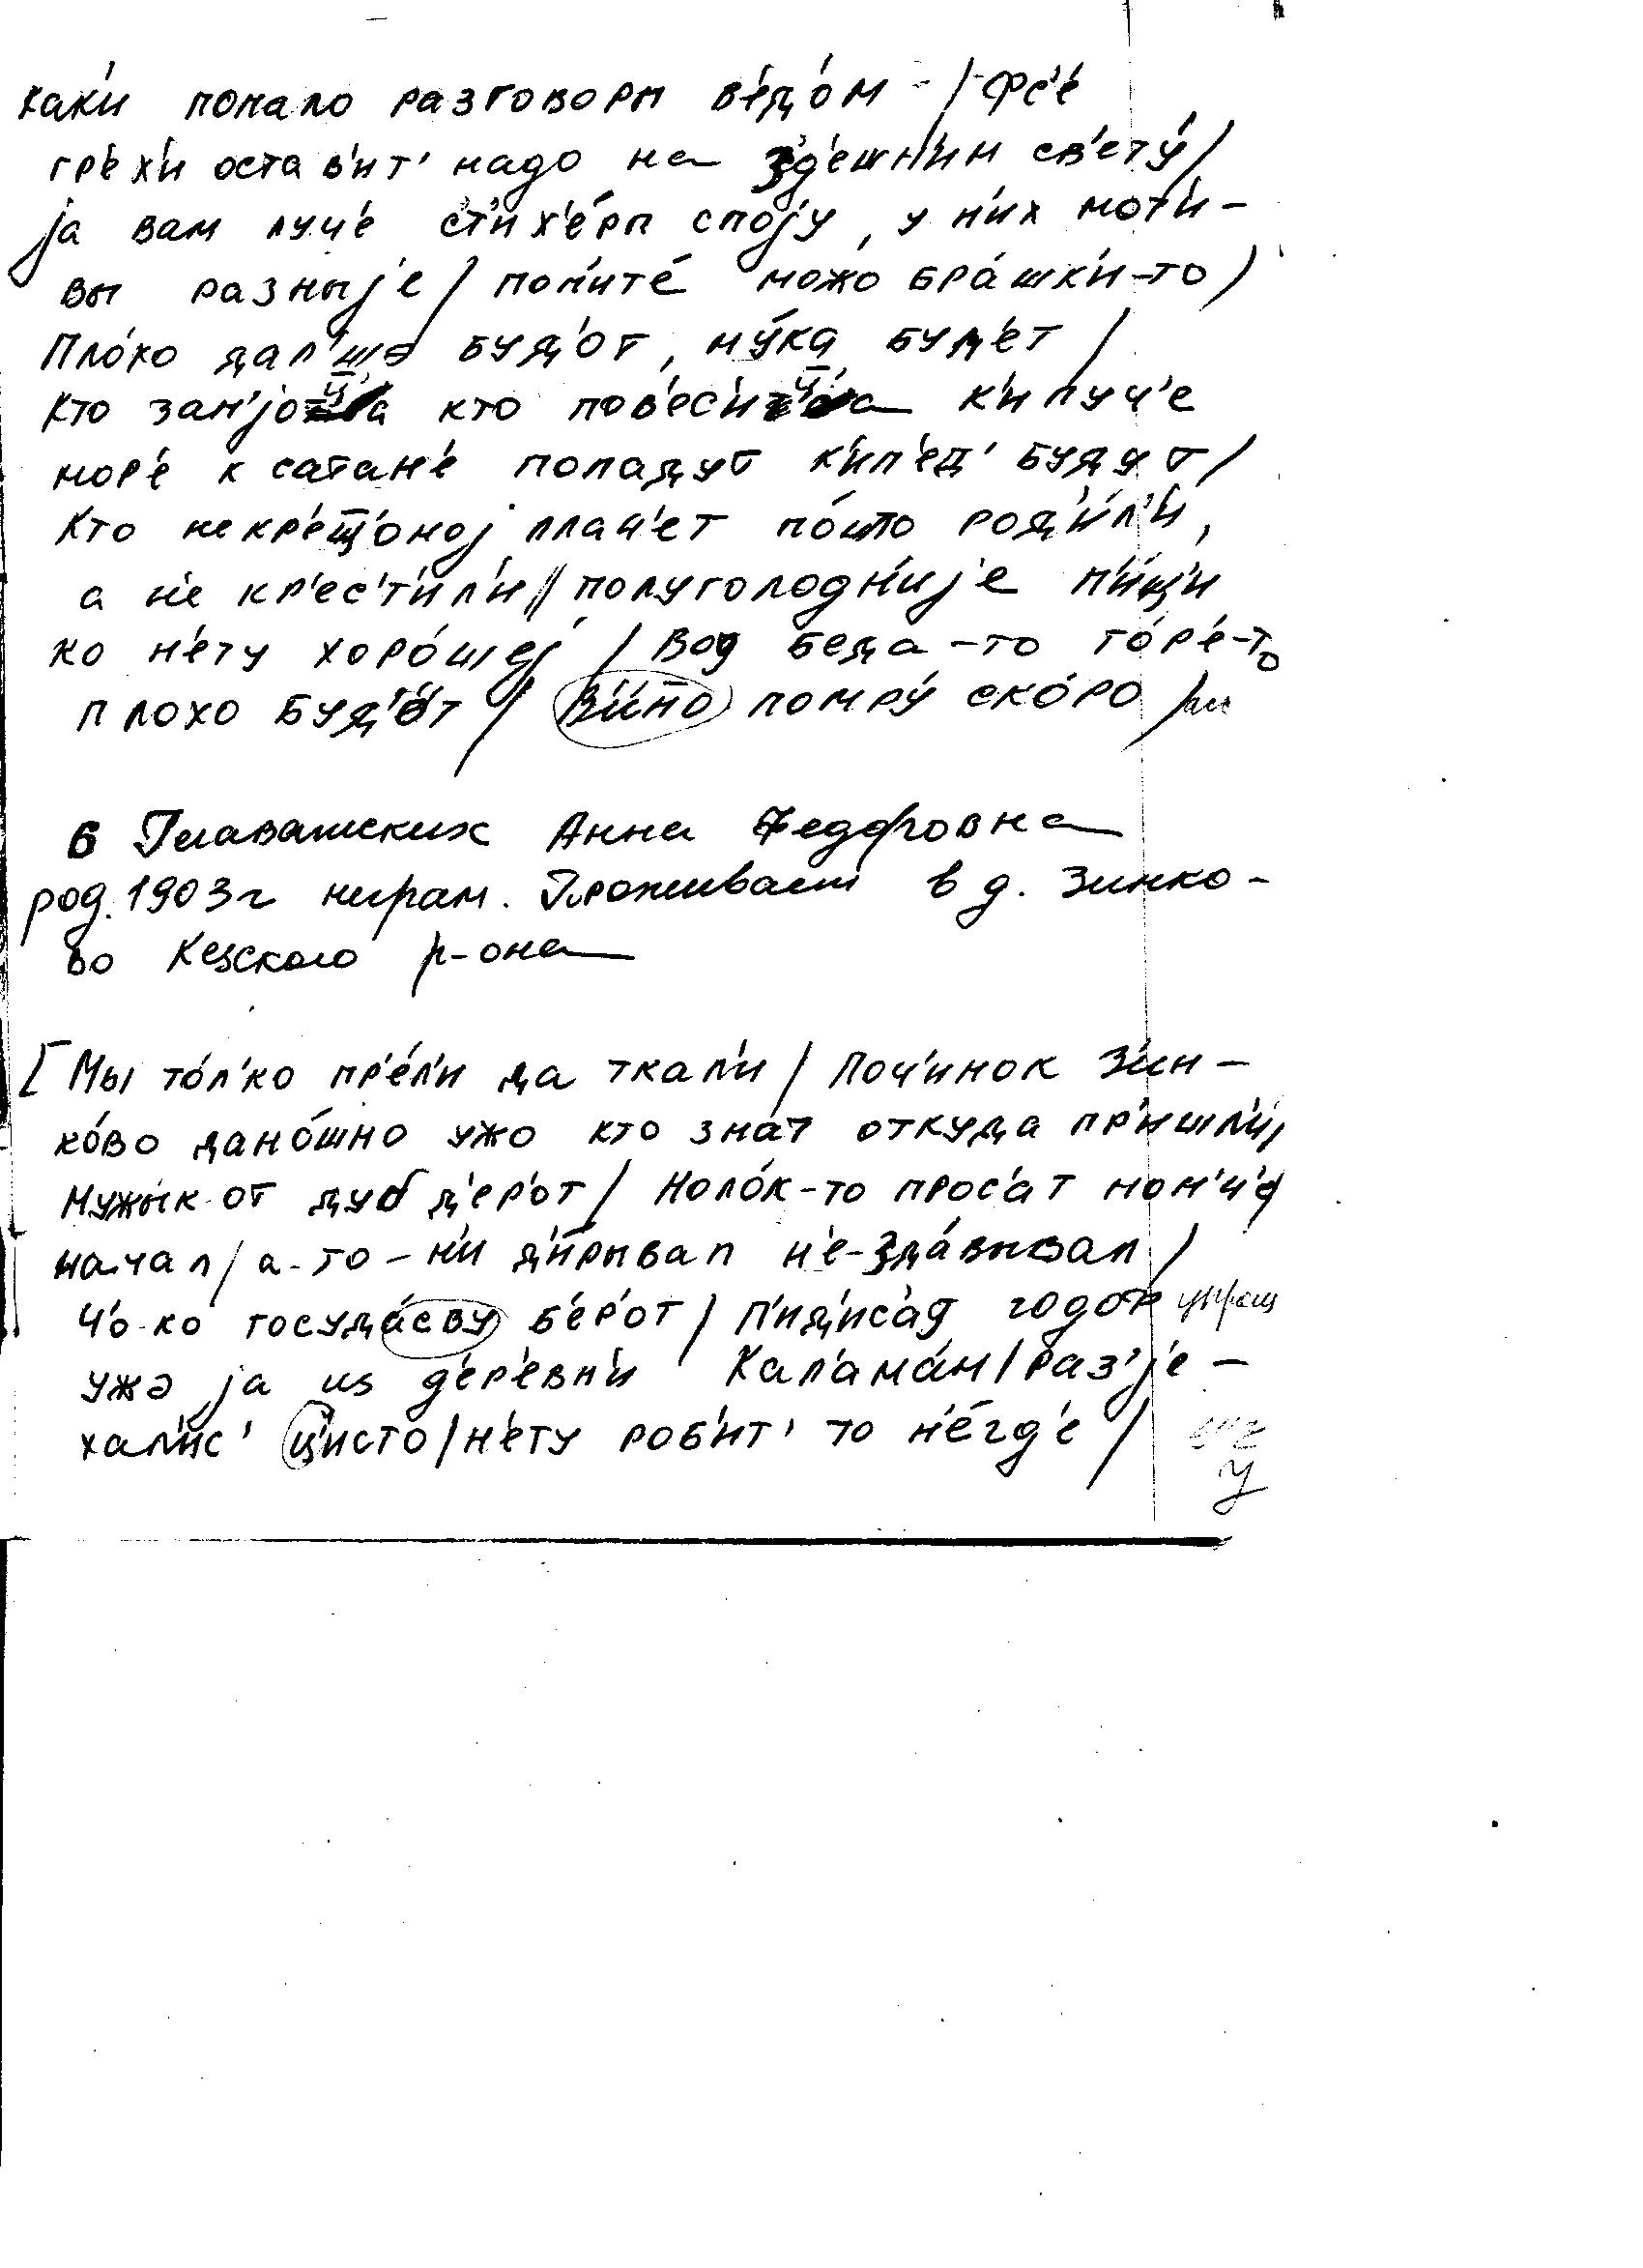 как'и попало разговоры в'ед'о́м / фс'е́
гр'ех'и остав'ит' надо на зд'ешн'им св'ету́ /
ја вам луч'е ст'их'е́ры споју, у н'их мот'и-
вы разныј'е / поп'ит'е́ можо бра́шк'и-то /
Пло́хо дал'шэ буд'от, му́ка буд'ет /
кто зап'јо ц̄а кто пов'ес'и ц̄а к'ипуч'е
мор'е к сатан'е попадут к'ип'ед' будут /
Кто некр'ещ̄'оној плач'ет по́што род'и́л'и,
а н'е кр'ес'т'ил'и // полуголодн'ијe п'и́щ'и
ко н'ету хоро́шеј / Вод беда-то го́р'е-то
плохо буд'о́т / в'и́но помру́ ско́ро /
6 Главатских Анна Федоровна
род. 1903 г неграм. Проживает в д. Зинко-
во Кезского р-она
[ Мы то́л'ко пр'е́л'и да ткал'и / Поч'инок З'ин-
ко́во дано́шно ужо кто зна́т откуда пр'ишл'и,
Мужы́к-от дуб д'ер'от / Моло́к-то прос'ат
начал / а-то-н'и д'и́рывал н'е-зда́вывал /
Ч'о-ко госуда́сву б'ер'от / п'ид'ис'а́д годоф
ужэ ја из д'ер'евн'и Кал'ама́н / раз'је-
хал'ис' ц'исто / н'ету роб'ит' то н'е́гд'е /